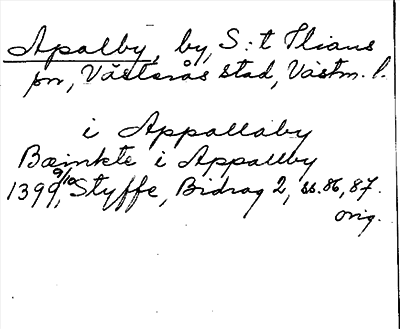 Apalby, by, S:t Ilians
sn, Västerås stad, Västm. l.
i Appallaby
Bæinkte i Appallby
1399 9/10, Styffe, Bidrag 2, ss. 86, 87.
orig.